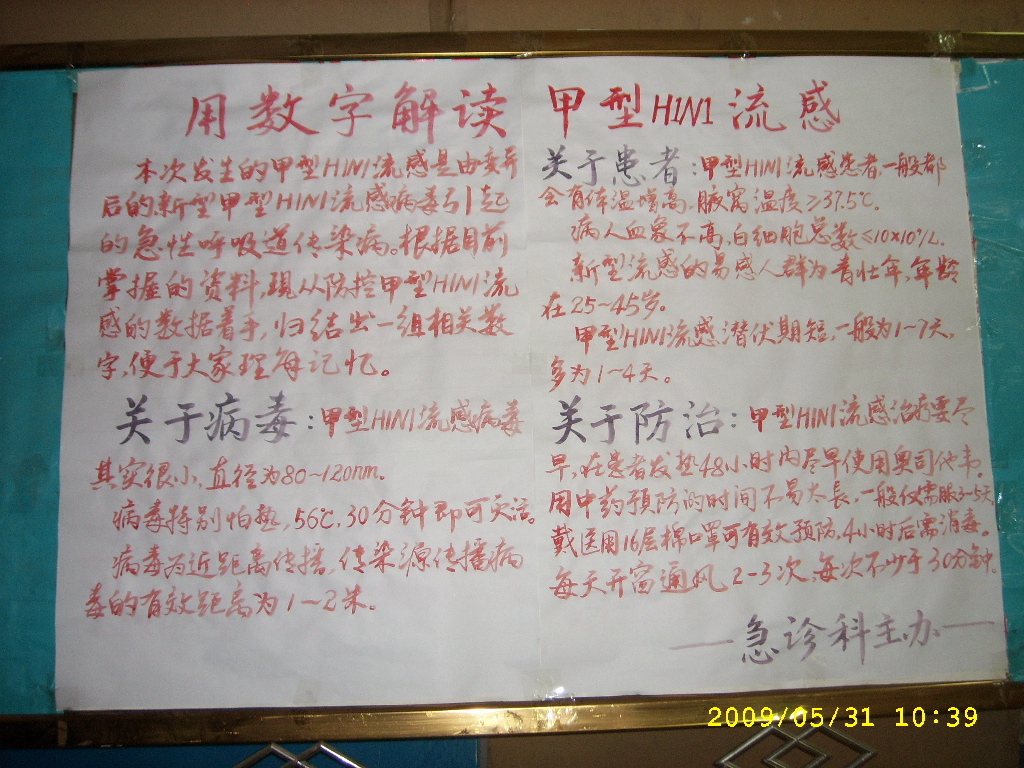 用数字解读 甲型H1N1流感
本次发生的甲型H1N1流感是由变异
后的新型甲型H1N1流感病毒引起
的急性呼吸道传染病。根据目前
掌握的资料,现从防控甲型H1N1流
感的数据着手,归结出一组相关数
字,便于大家理解记忆。
关于病毒:甲型H1N1流感病毒
其实很小,直径为80~120nm.
病毒特别怕热,56℃,30分钟即可灭活。
病毒为近距离传播,传染源传播病
毒的有效距离为1~2米。
关于患者:甲型H1N1流感患者,一般都
会有体温增高,腋窝温度≥37.5℃.
病人血象不高,白细胞总数≤10×10⁹/L.
新型流感的易感人群为青壮年,年龄
在25~45岁。
甲型H1N1流感潜伏期短,一般为1~7天,
多为1~4天。
关于防治:甲型H1N1流感治疗要尽
早,在患者发热48小时内尽早使用奥司他韦。
用中药预防的时间不易太长,一般仅需服3-5天
戴医用16层棉口罩可有效预防,4小时后需消毒。
每天开窗通风2-3次,每次不少于30分钟.
——急诊科主办——
2009/05/31 10:39